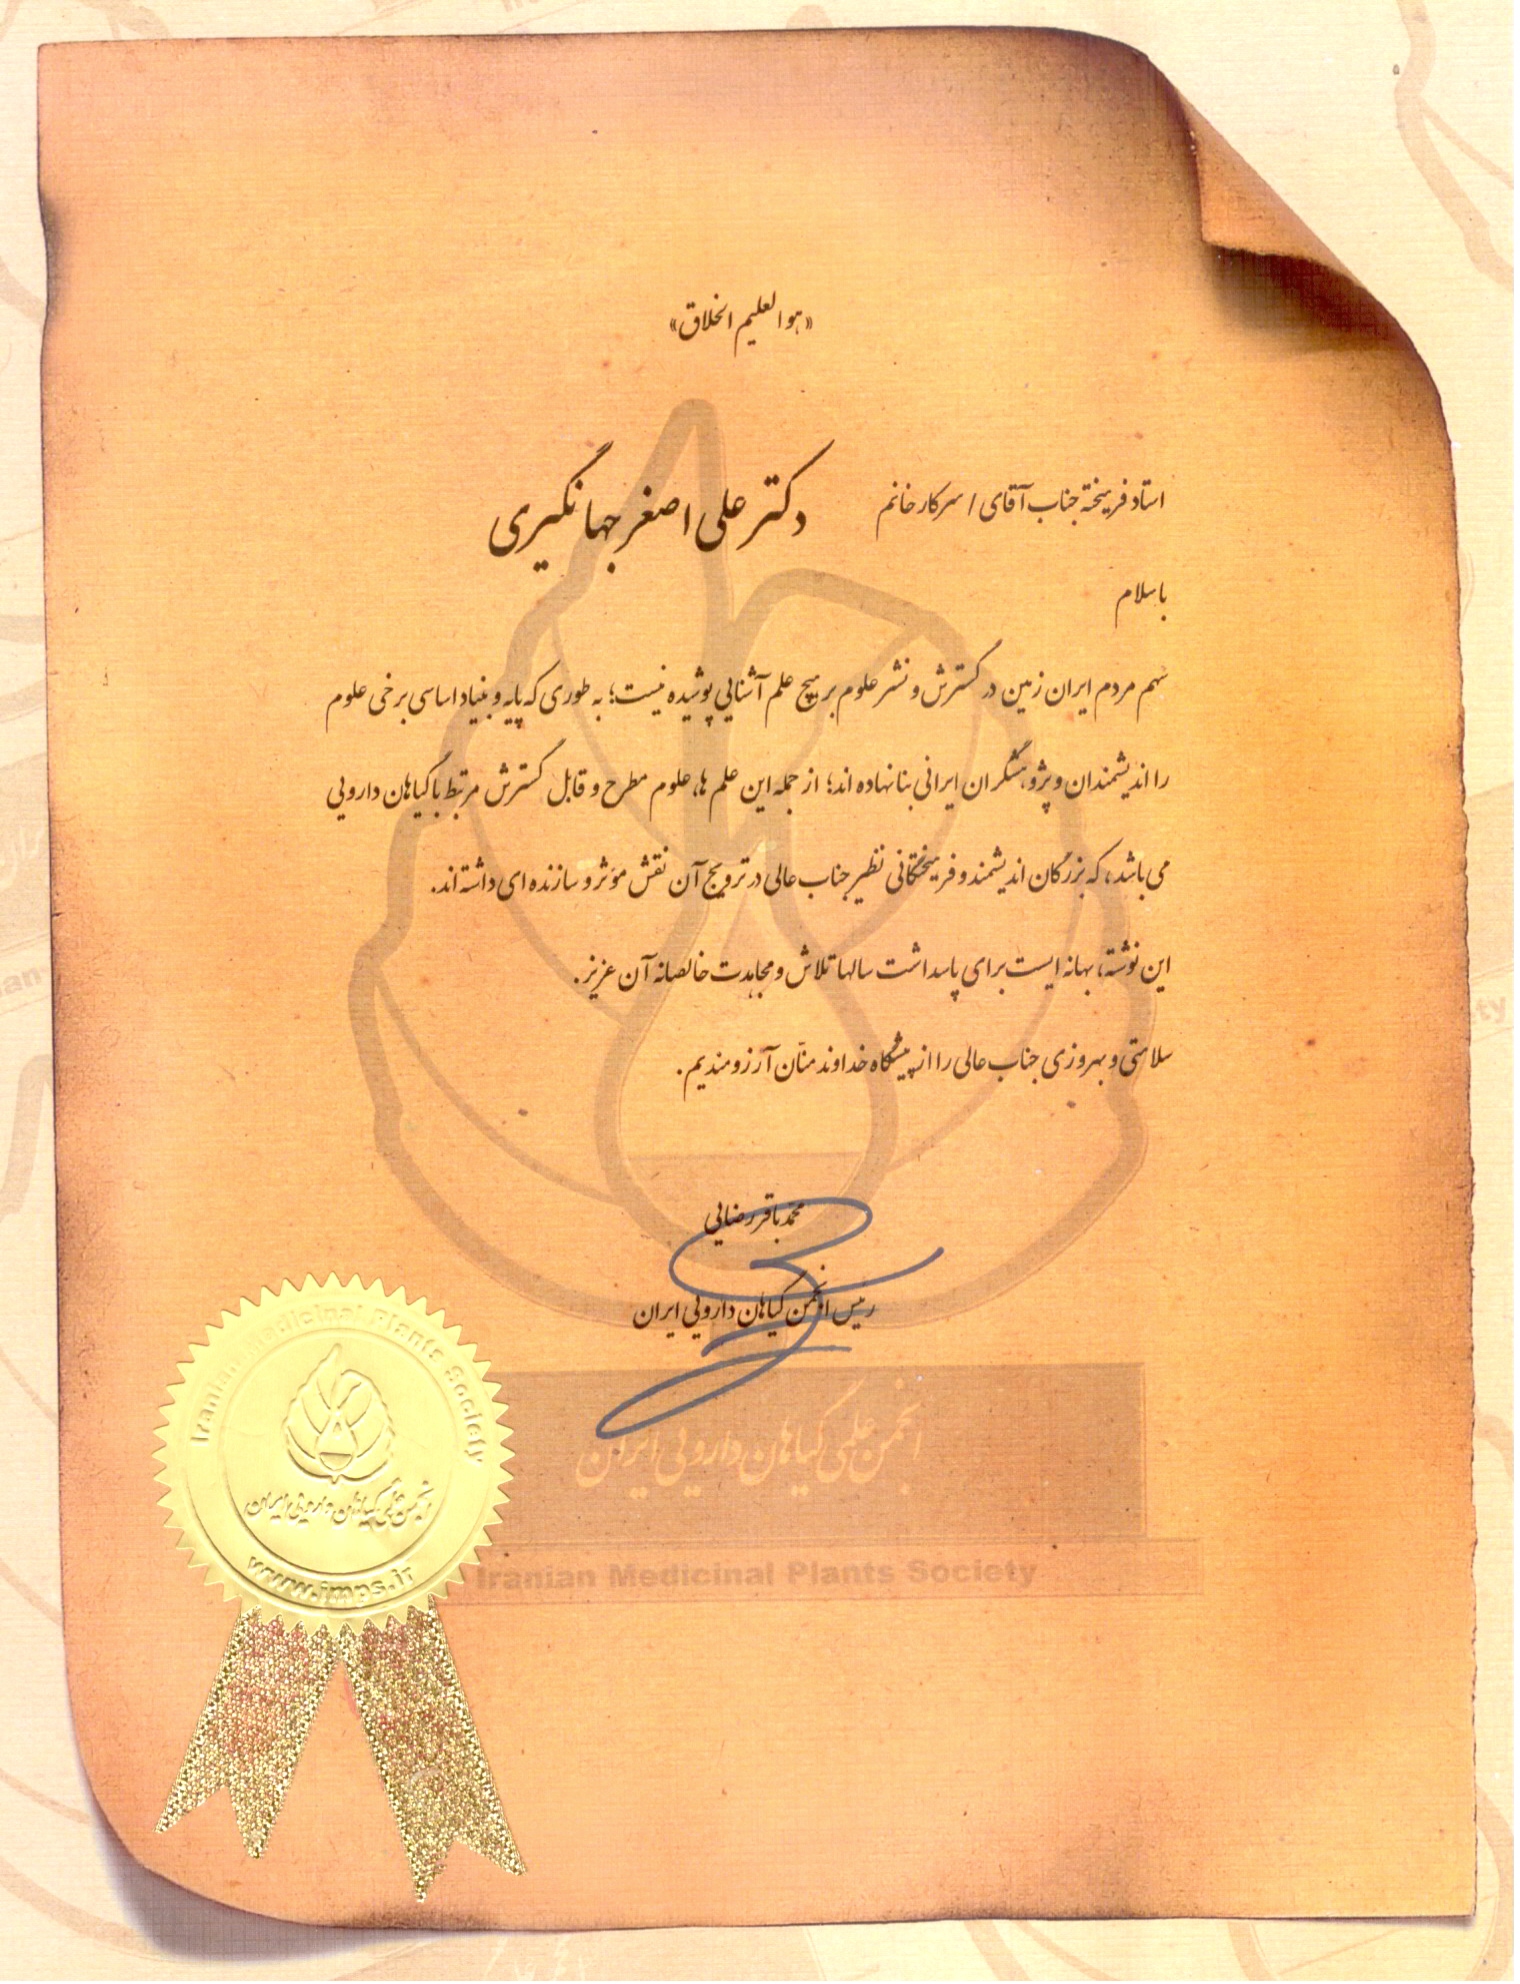 «هوالعلیم الخلاق»
استاد فرهیخته جناب آقای / سرکار خانم دکتر علی اصغر جهانگیری
با سلام
سهم مردم ایران زمین در گسترش و نشر علوم بر هیچ علم آشنایی پوشیده نیست؛ به طوری که پایه و بنیاد اساسی برخی علوم
را اندیشمندان و پژوهشگران ایرانی بنا نهاده اند؛ از جمله این علم ها، علوم مطرح و قابل گسترش مرتبط با گیاهان دارویی
می باشد، که بزرگان اندیشمند و فرهیختگانی نظیر جناب عالی در ترویج آن نقش مؤثر و سازنده ای داشته اند.
این نوشته، بهانه ایست برای پاسداشت سالها تلاش و مجاهدت خالصانه آن عزیز.
سلامتی و بهروزی جناب عالی را از پیشگاه خداوند منّان آرزومندیم.
محمدباقر رضایی
رئیس انجمن گیاهان دارویی ایران
انجمن علمی گیاهان دارویی ایران
Iranian Medicinal Plants Society
Iranian Medicinal Plants Society
انجمن علمی گیاهان دارویی ایران
www.imps.ir